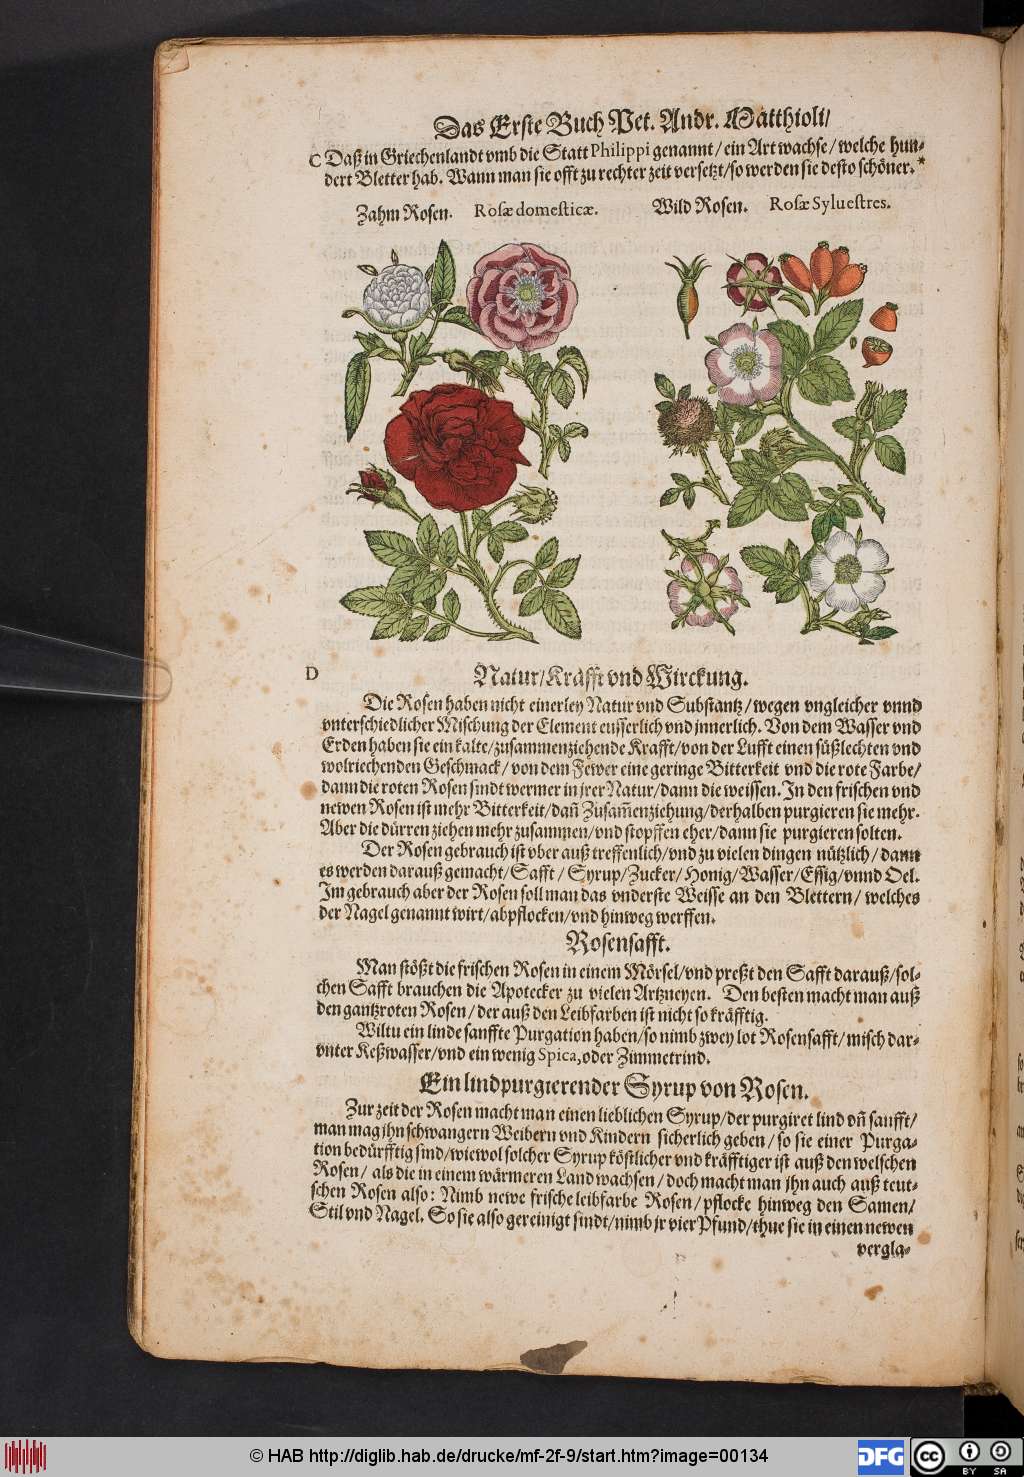 Das Erste Buch Pet. Andr. Matthioli/
C Daß in Griechenlandt vmb die Statt Philippi genannt/ ein Art wachse/ welche hun-
dert Bletter hab. Wann man sie offt zu rechter zeit versetzt/so werden sie desto schöner.*
Zahm Rosen. Rosæ domesticæ. Wild Rosen. Rosæ Syluestres.
D Natur/Kräfft vnd Wirckung.
Die Rosen haben nicht einerley Natur vnd Substantz/ wegen vngleicher vnnd
vnterschiedlicher Mischung der Element eusserlich vnd jnnerlich. Von dem Wasser vnd
Erden haben sie ein kalte/zusammenziehende Krafft/von der Lufft einen süßlechten vnd
wolriechenden Geschmack/ von dem Fewer eine geringe Bitterkeit vnd die rote Farbe/
dann die roten Rosen sindt wermer in jrer Natur/dann die weissen. In den frischen vnd
newen Rosen ist mehr Bitterkeit/dañ Zusam̃enziehung/derhalben purgieren sie mehr.
Aber die dürren ziehen mehr zusammen/vnd stopffen eher/dann sie purgieren solten.
Der Rosen gebrauch ist vber auß treffenlich/vnd zu vielen dingen nützlich/ dann
es werden darauß gemacht/Safft/ Syrup/Zucker/ Honig/Wasser/Essig/vnnd Oel.
Im gebrauch aber der Rosen soll man das vnderste Weisse an den Blettern/ welches
der Nagel genannt wirt/abpflocken/vnd hinweg werffen.
Rosensafft.
Man stößt die frischen Rosen in einem Mörsel/vnd preßt den Safft darauß/sol-
chen Safft brauchen die Apotecker zu vielen Artzneyen. Den besten macht man auß
den gantzroten Rosen/ der auß den Leibfarben ist nicht so kräfftig.
Wiltu ein linde sanffte Purgation haben/so nimb zwey lot Rosensafft/ misch dar-
vnter Keßwasser/vnd ein wenig Spica, oder Zimmetrind.
Ein lindpurgierender Syrup von Rosen.
Zur zeit der Rosen macht man einen lieblichen Syrup/der purgiret lind vñ saufft/
man mag jhn schwangern Weibern vnd Kindern sicherlich geben/ so sie einer Purga-
tion bedürfftig sind/wiewol solcher Syrup köstlicher vnd kräfftiger ist auß den welschen
Rosen/ als die in einem wärmeren Land wachsen/ doch macht man jhn auch auß teut-
schen Rosen also: Nimb newe frische leibfarbe Rosen/ pflocke hinweg den Samen/
Stil vnd Nagel. So sie also gereinigt sindt/nimb jr vier Pfund/thue sie in einen newen
vergla-
© HAB http://diglib.hab.de/drucke/mf-2f-9/start.htm?image=00134
DFG
cc
BY SA